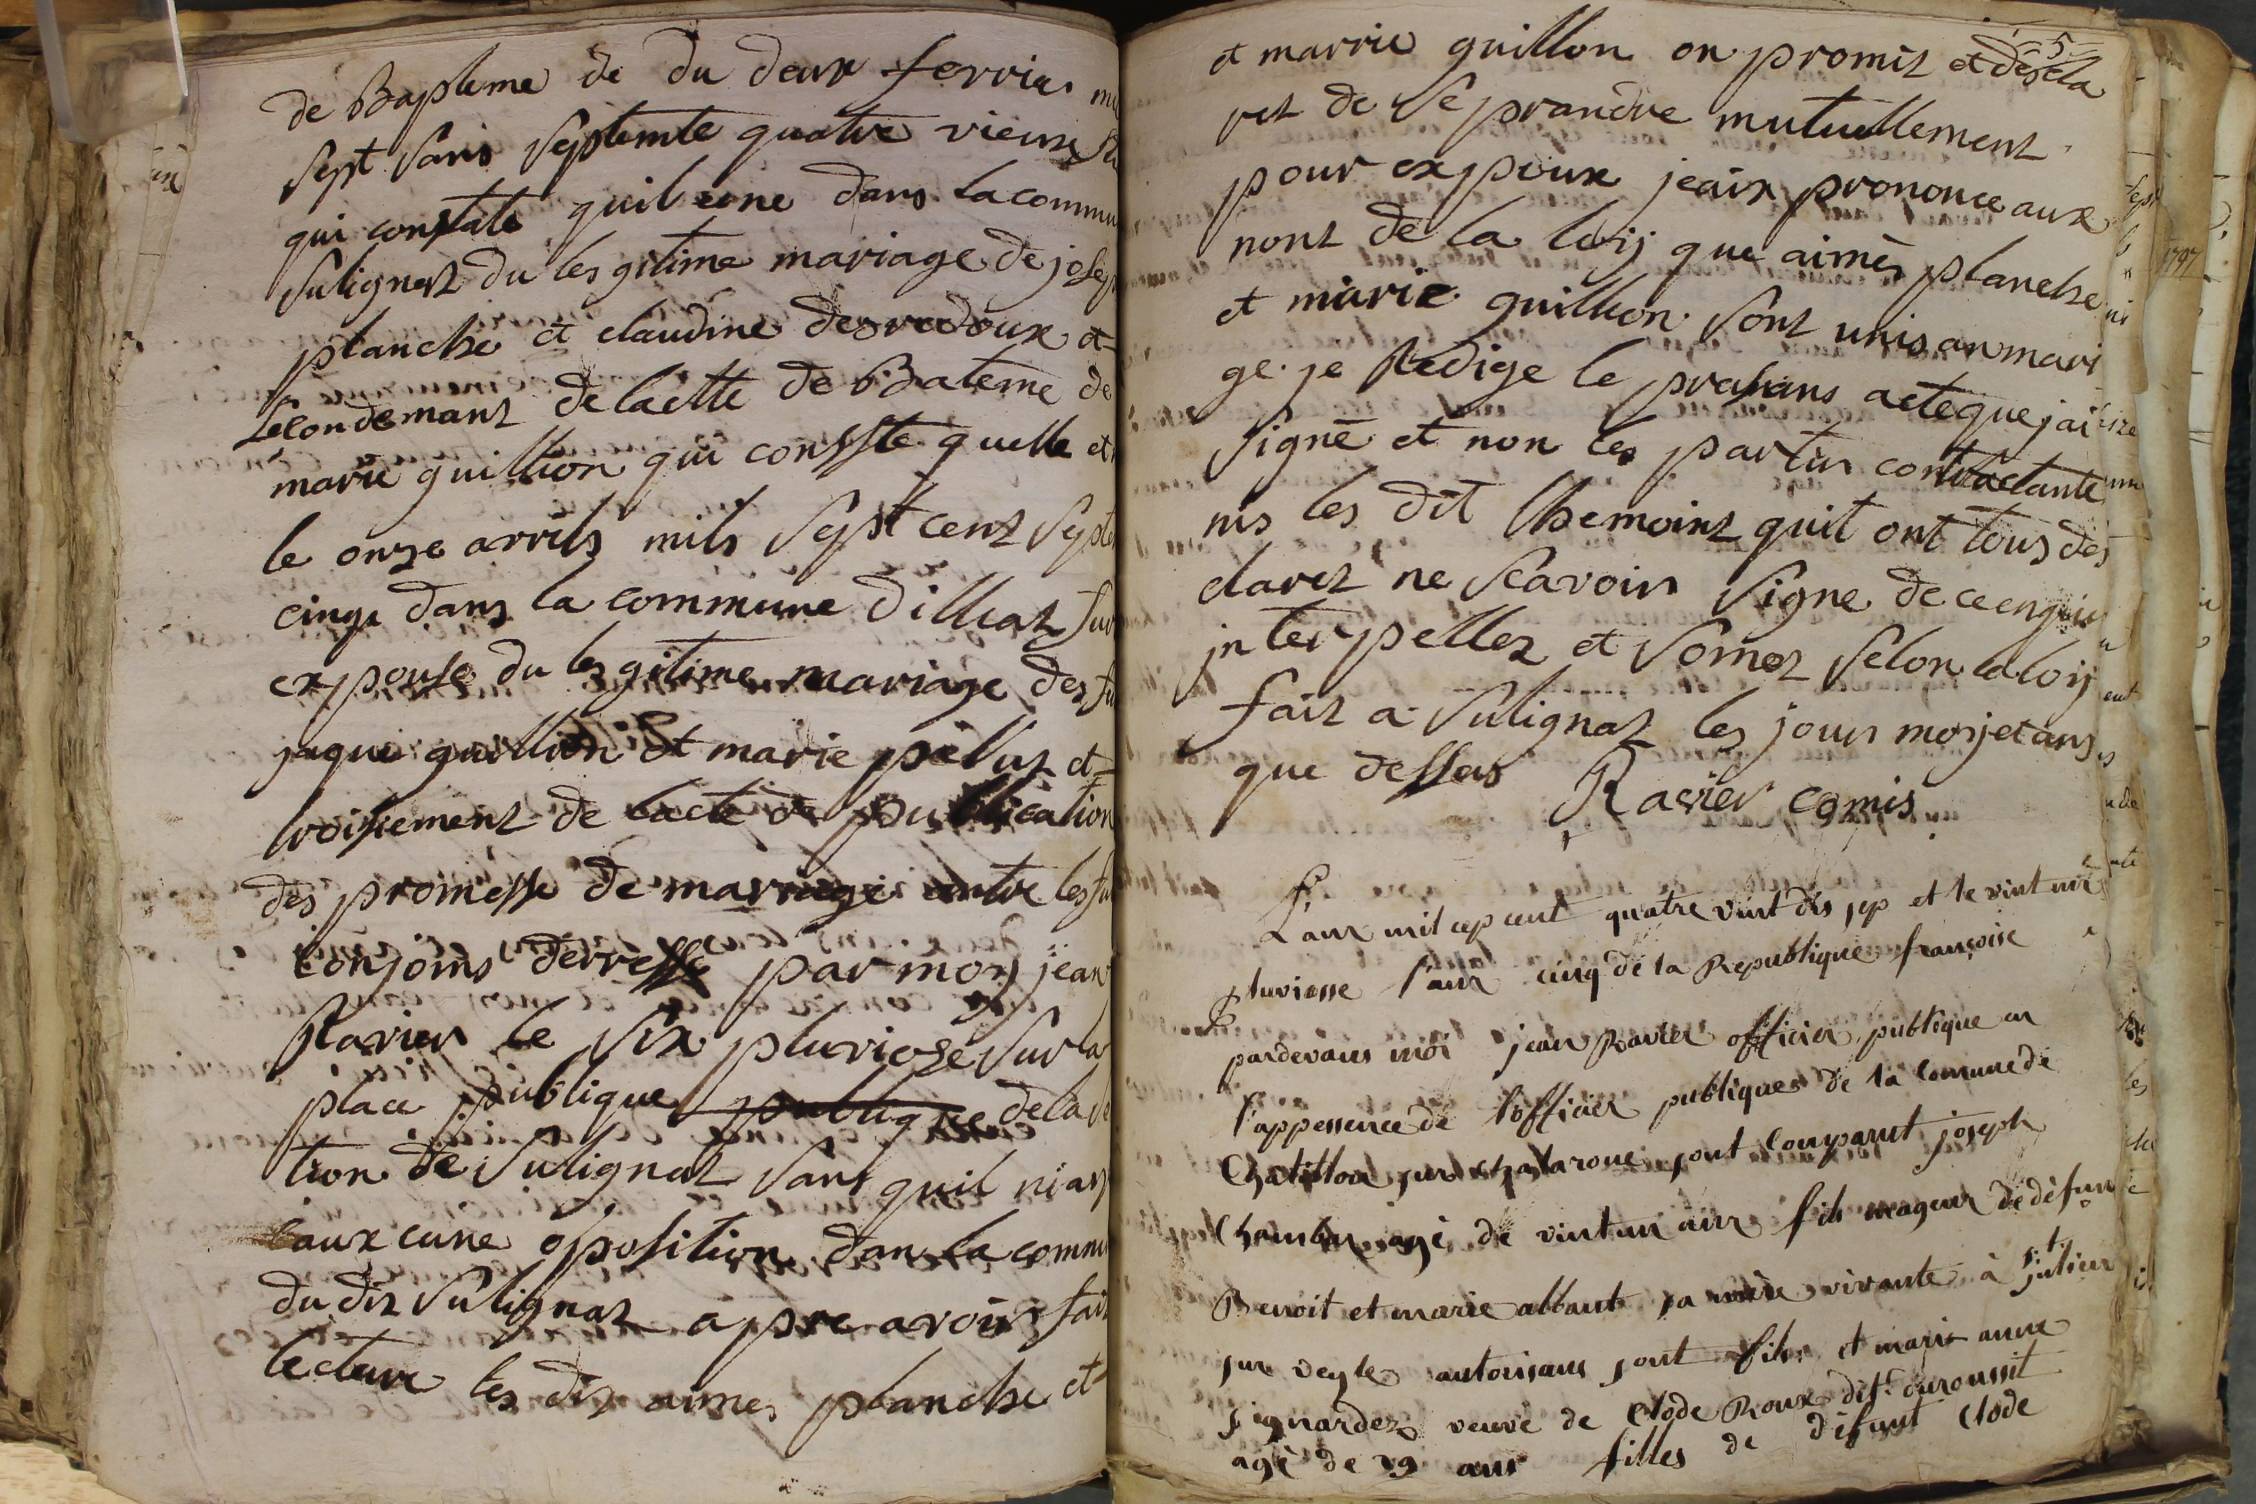 de Bapteme de du deux fevrier
sept sans septemte quatre vieux
qui constate quil eine dans la commu
sulignat du les gitime mariage de josep
planche et claudine desvedoux et
secondemant de lactte de Bateme de
marie guillion qui consste quelle et
le onze avrils mils sept cent septe
cinqz dans la commune dilliat fur
expouse du les gitime mariage des fu
jaque guillion et marie pellut et
troisiement de lacte de publication
des promesse de mariage antre les fu
conjoins derresse par moy jean
Ravier le six pluvioze sur la
place publique publique de la se
tion de sulignat sans quil niay
aux cune oposition dan la commu
du dit sulignat apre avoir fait
lecture les dix aimes planche et
5
et marrie guillon on promit et des cla
ret de se prandre mutuellement
pour expoux jeaix prononce aux
nont de la loij que aimés planche
et marie guillion sont unis an mari
ge je Redige le prasans acte que jai
signé et non les partiis contractante
nis les dit themoint quit ont tous dés
claret ne scavoir signe de ce enquis
jnterpellez et somez selon la loij
fait a sulignat les jour moijetans
que dessus Ravier comis
L'anx mil cep cent quatre vint dis sep et le vint un
pluviosse l'anx cinq de la Republique françoise
pardevans moi jean Ravier officier publique an
l'appessence de l'officier publiques de la Comune de
Chatillon sur chalaronne sont Comparut joseph
Chambar agé de vint un anx fils mageur de défun
Benoit et marie albant sa mère vivante à st julien
sur veyle autorisans sont fils et marie anne
signardez veuve de Clode Roux dit ouroussit
agé de 29 ans filles de défunt Clode
1797